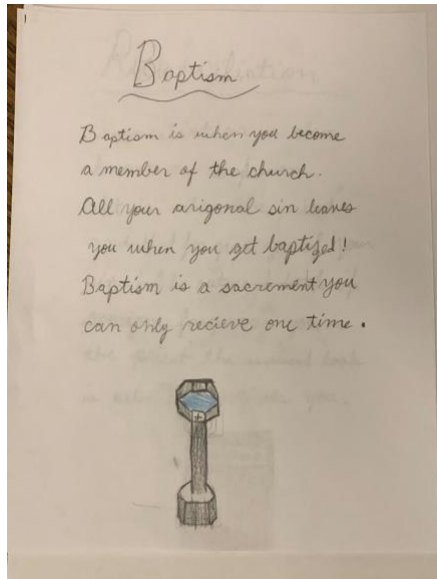 Baptism
Baptism is when you become
a member of the church.
All your arigonal sin leaves
you when you get baptized!
Baptism is a sacrement you
can only recieve one time.